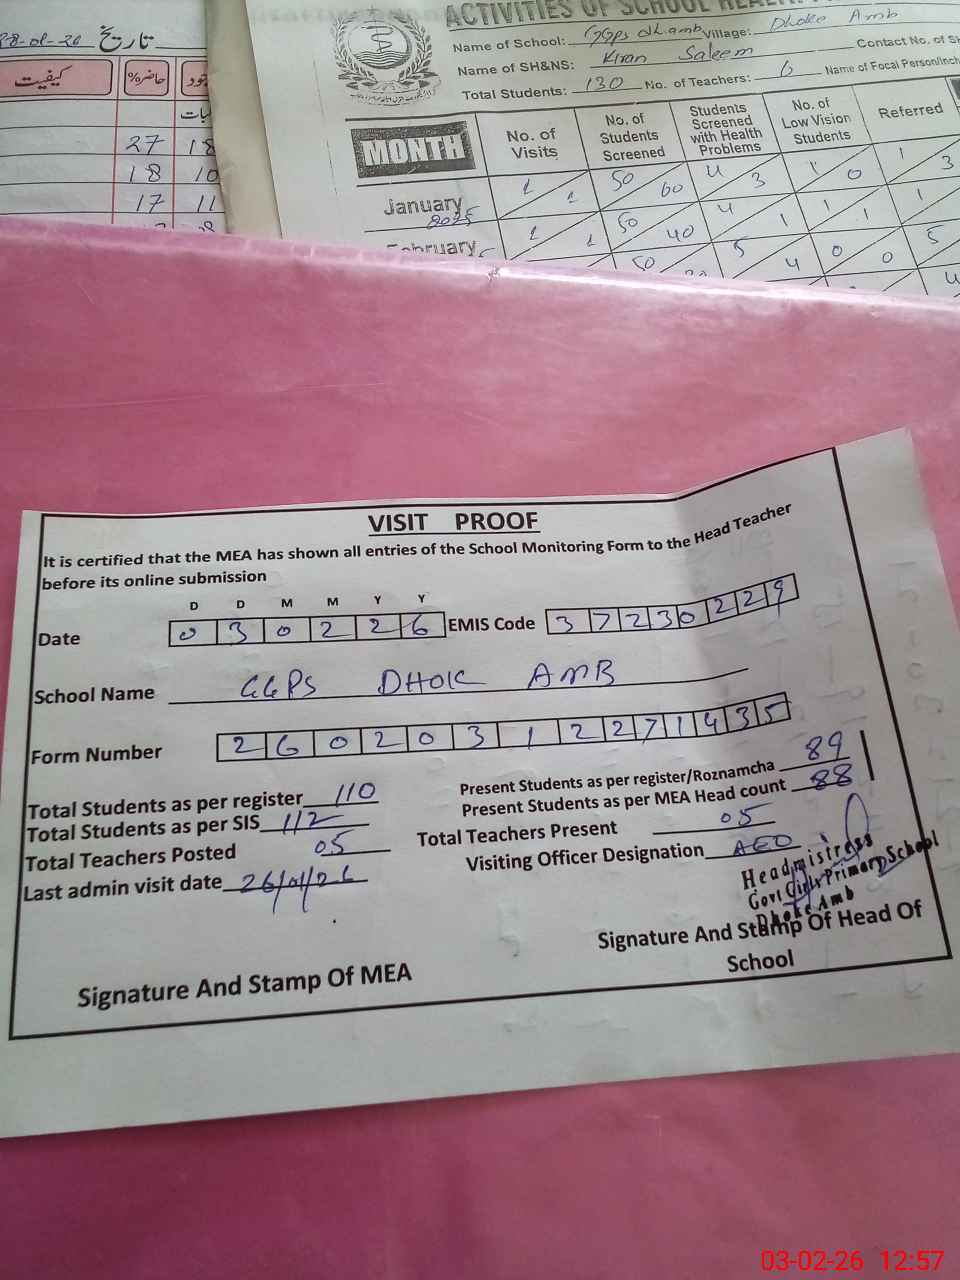 28-01-26 تاریخ
کیفیت
حاضر%
27 18
18 10
17 11
ACTIVITIES OF SCHOOL HEALTH
Name of School: GGps dhamb Village: Dhoke Amb
Name of SH&NS: Kiran Saleem Contact No. of SH
Total Students: 130 No. of Teachers: 6 Name of Focal Person/Inch
MONTH
No. of Visits
No. of Students Screened
Students Screened with Health Problems
No. of Low Vision Students
Referred
January 2025 1 1 50 60 4 3 1 0 1 3
February 1 1 50 40 4 1 1 1 1
50 5 4 0 0 5
VISIT PROOF
It is certified that the MEA has shown all entries of the School Monitoring Form to the Head Teacher
before its online submission
D D M M Y Y
Date 0 3 0 2 2 6 EMIS Code 3 7 2 3 0 2 2 9
School Name GGPS DHOK AMB
Form Number 2 6 0 2 0 3 1 2 2 7 1 4 3 5
Total Students as per register 110 Present Students as per register/Roznamcha 89
Total Students as per SIS 112 Present Students as per MEA Head count 88
Total Teachers Posted 05 Total Teachers Present 05
Last admin visit date 26/01/26 Visiting Officer Designation AEO
Headmistress
Govt Girls Primary School
Dhoke Amb
Signature And Stamp Of MEA
Signature And Stamp Of Head Of
School
03-02-26 12:57